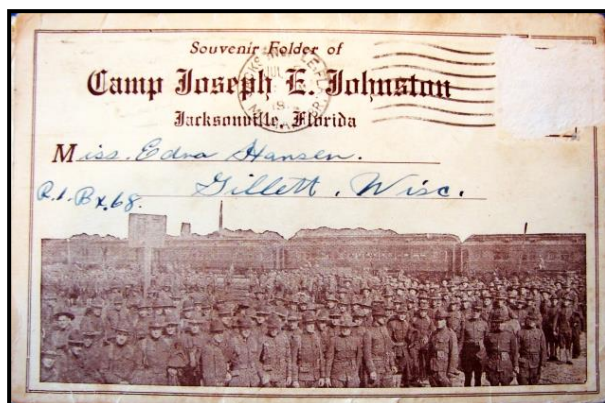 Souvenir Folder of
Camp Joseph E. Johnston
Jacksonville, Florida
Miss. Edna Hansen.
R.1. Bx. 68. Gillett, Wisc.